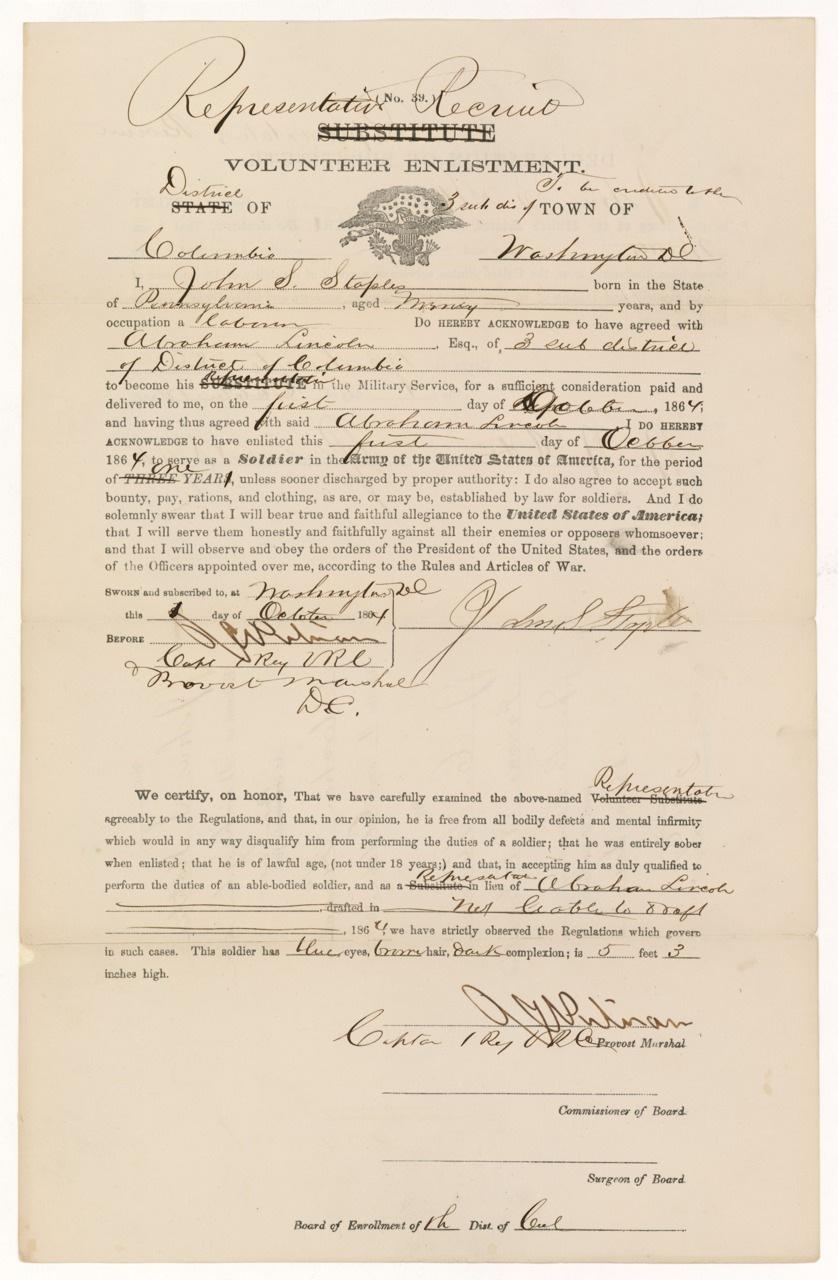 Representative (No. 39.) Recruit
SUBSTITUTE
VOLUNTEER ENLISTMENT.
District To be credited to the
STATE OF 3 sub dis of TOWN OF
Columbia Washington DC
I, John S. Staples born in the State
of Pennsylvania, aged Twenty years, and by
occupation a laborer DO HEREBY ACKNOWLEDGE to have agreed with
Abraham Lincoln, Esq., of 3 sub district
of District of Columbia
Representative
to become his SUBSTITUTE in the Military Service, for a sufficient consideration paid and
delivered to me, on the first day of October, 1864;
and having thus agreed with said Abraham Lincoln I DO HEREBY
ACKNOWLEDGE to have enlisted this first day of October
1864, to serve as a Soldier in the Army of the United States of America, for the period
one
of THREE YEAR, unless sooner discharged by proper authority: I do also agree to accept such
bounty, pay, rations, and clothing, as are, or may be, established by law for soldiers. And I do
solemnly swear that I will bear true and faithful allegiance to the United States of America;
that I will serve them honestly and faithfully against all their enemies or opposers whomsoever;
and that I will observe and obey the orders of the President of the United States, and the orders
of the Officers appointed over me, according to the Rules and Articles of War.
SWORN and subscribed to, at Washington DC
this 1 day of October 1864
John S Staples
BEFORE
Capt 1 Reg VRC
& Provost Marshal
D.C.
Representative
We certify, on honor, That we have carefully examined the above-named Volunteer Substitute
agreeably to the Regulations, and that, in our opinion, he is free from all bodily defects and mental infirmity
which would in any way disqualify him from performing the duties of a soldier; that he was entirely sober
when enlisted; that he is of lawful age, (not under 18 years;) and that, in accepting him as duly qualified to
Representative
perform the duties of an able-bodied soldier, and as a Substitute in lieu of Abraham Lincoln
, drafted in Not liable to Draft
, 1864, we have strictly observed the Regulations which govern
in such cases. This soldier has blue eyes, brown hair, Dark complexion; is 5 feet 3
inches high.
Captain 1 Reg VRC Provost Marshal
Commissioner of Board.
Surgeon of Board.
Board of Enrollment of Dist. of Col